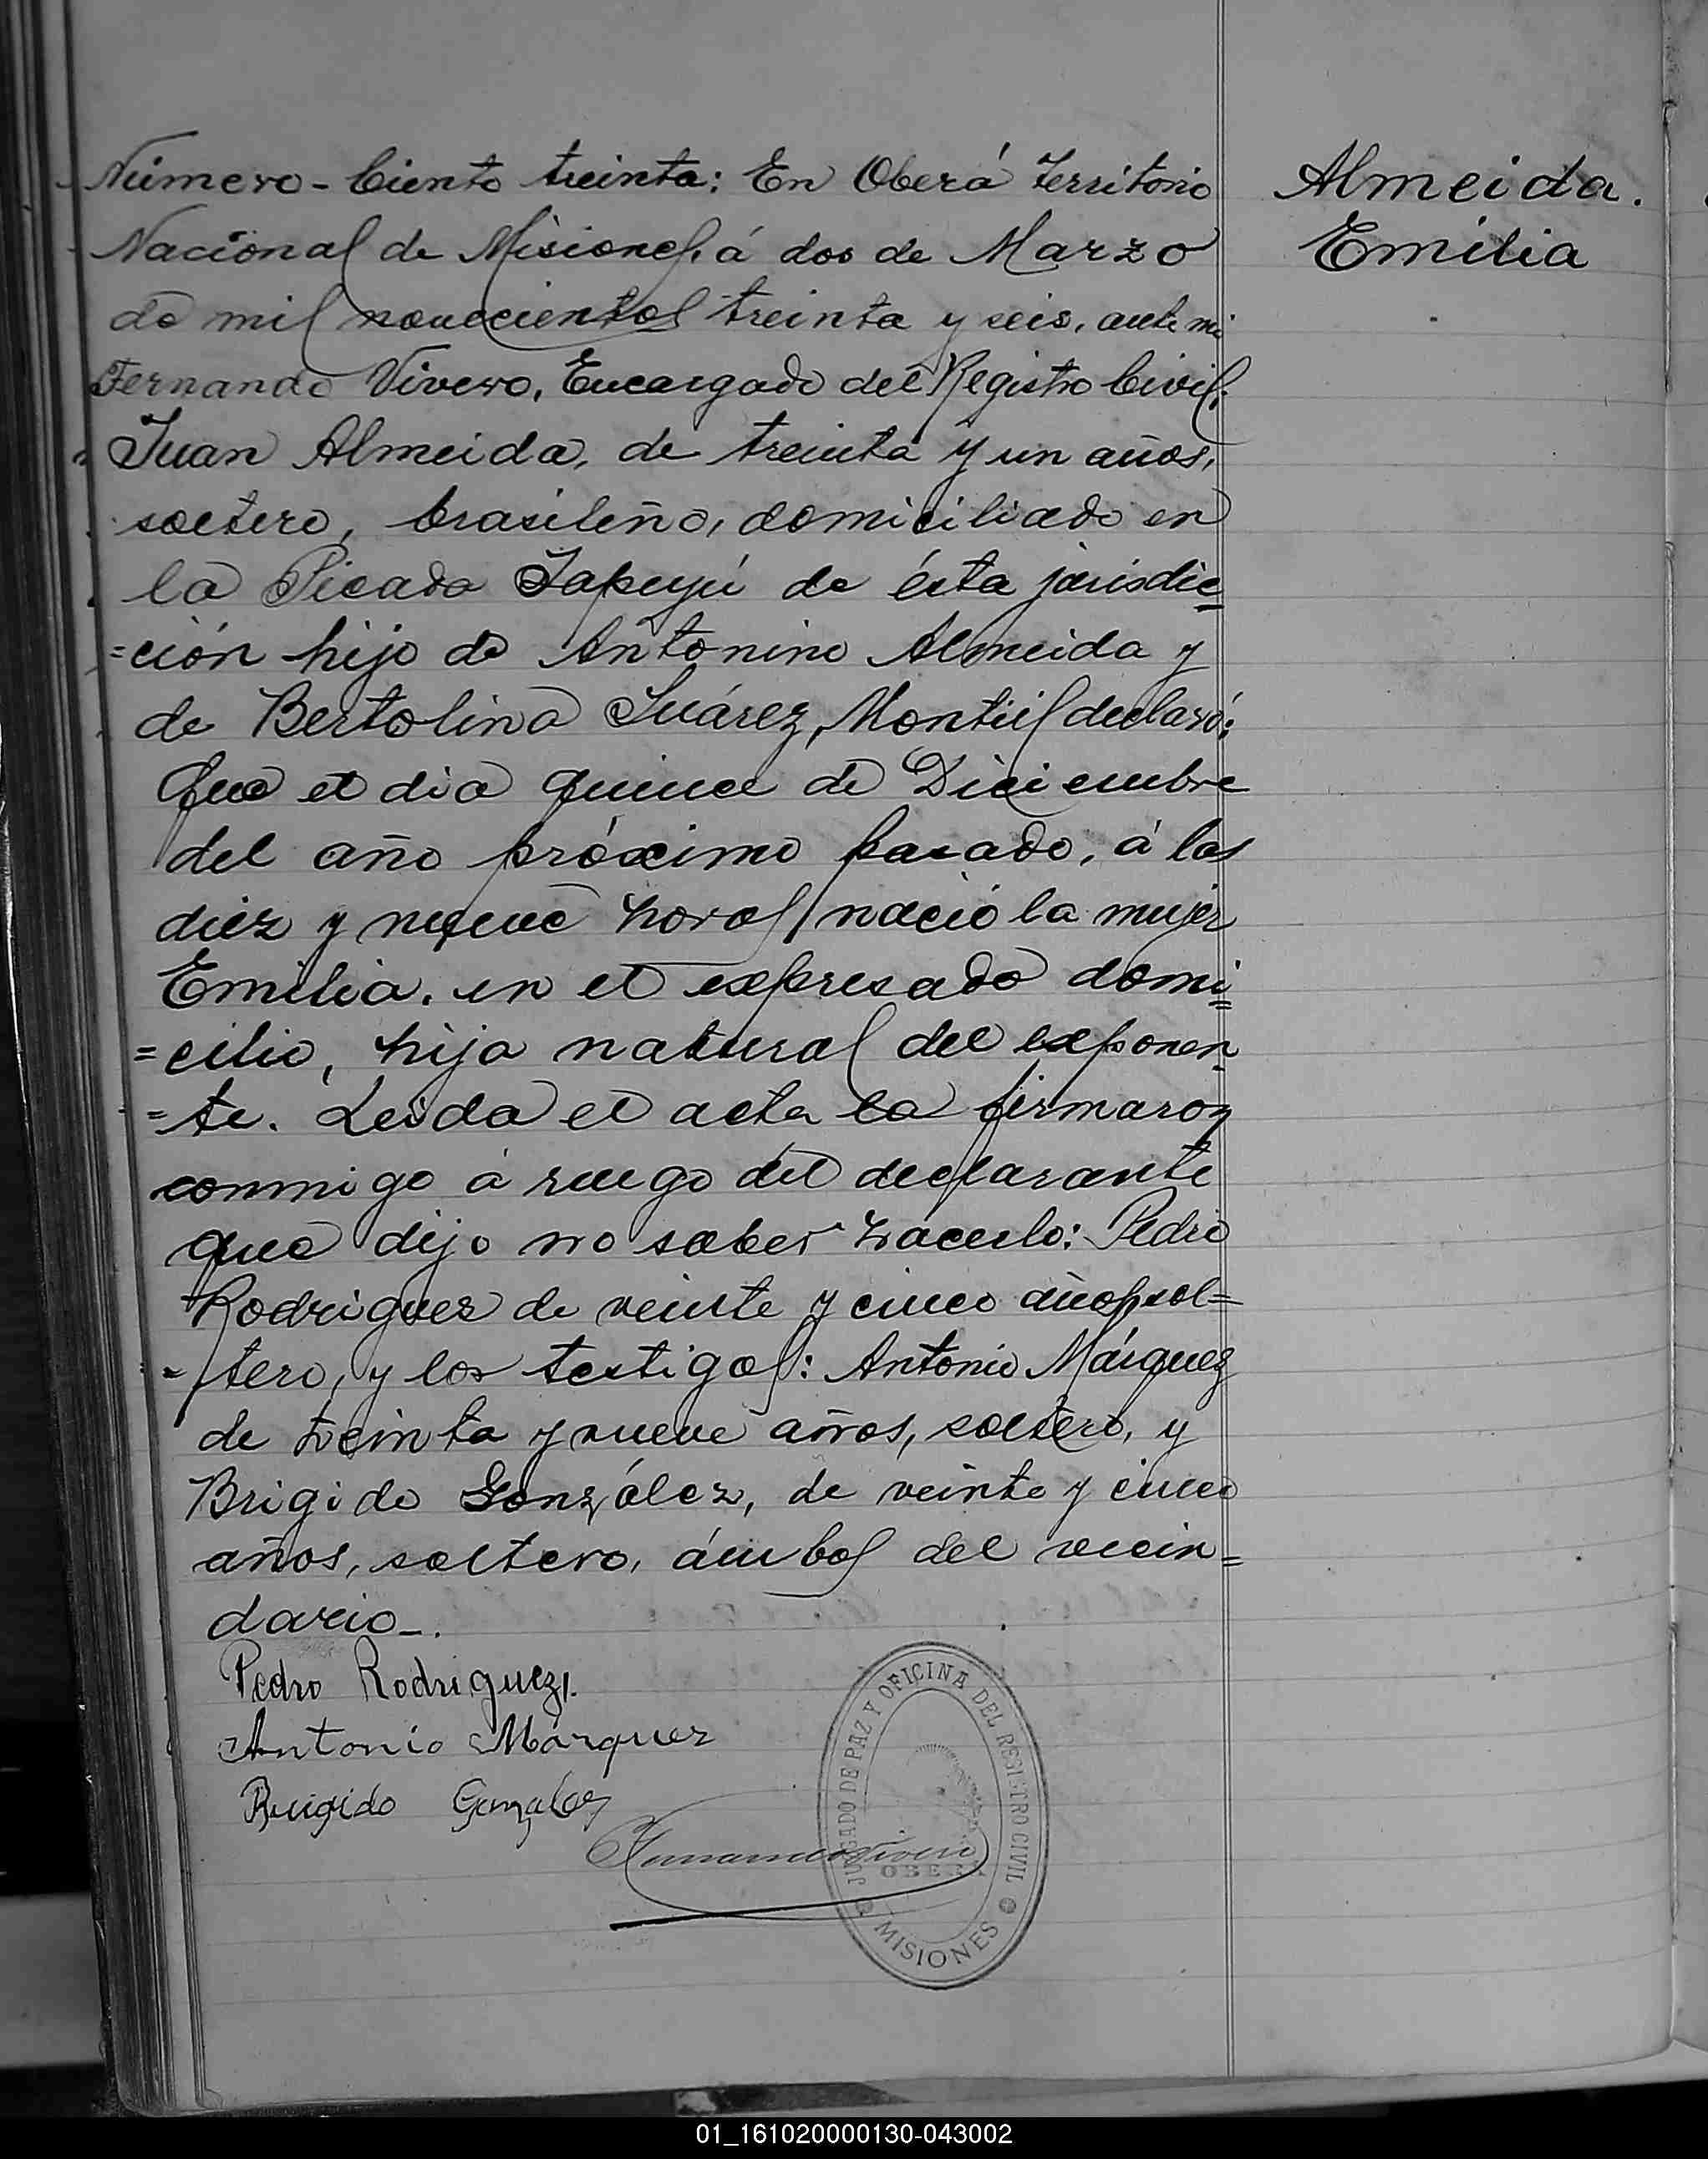 Número - Ciento treinta: En Oberá Territorio
Nacional de Misiones, á dos de Marzo
de mil novecientos treinta y seis, ante mi
Fernando Vivero, Encargado del Registro Civil,
Juan Almeida, de treinta y un años,
soltero, brasileño, domiciliado en
la Picada Yapeyú de ésta jurisdic=
=ción hijo de Antonino Almeida y
de Bertolina Suárez Montiel declaró:
Que el dia quince de Diciembre
del año próximo pasado, á las
diez y nueve horas nació la mujer
Emilia. en el expresado domi=
=cilio, hija natural del exponen=
=te. Leída el acta la firmaron
conmigo á ruego del declarante
que dijo no saber hacerlo: Pedro
Rodriguez de veinte y cinco años sol=
=tero, y los testigos: Antonio Márquez
de treinta y nueve años, soltero, y
Brigido González, de veinte y cinco
años, soltero, ámbos del vecin=
dario_.
Almeida.
Emilia
Pedro Rodriguez.
Antonio Márquez
Brigido Gonzalez
JUZGADO DE PAZ Y OFICINA DEL REGISTRO CIVIL
OBERÁ
MISIONES
01_161020000130-043002